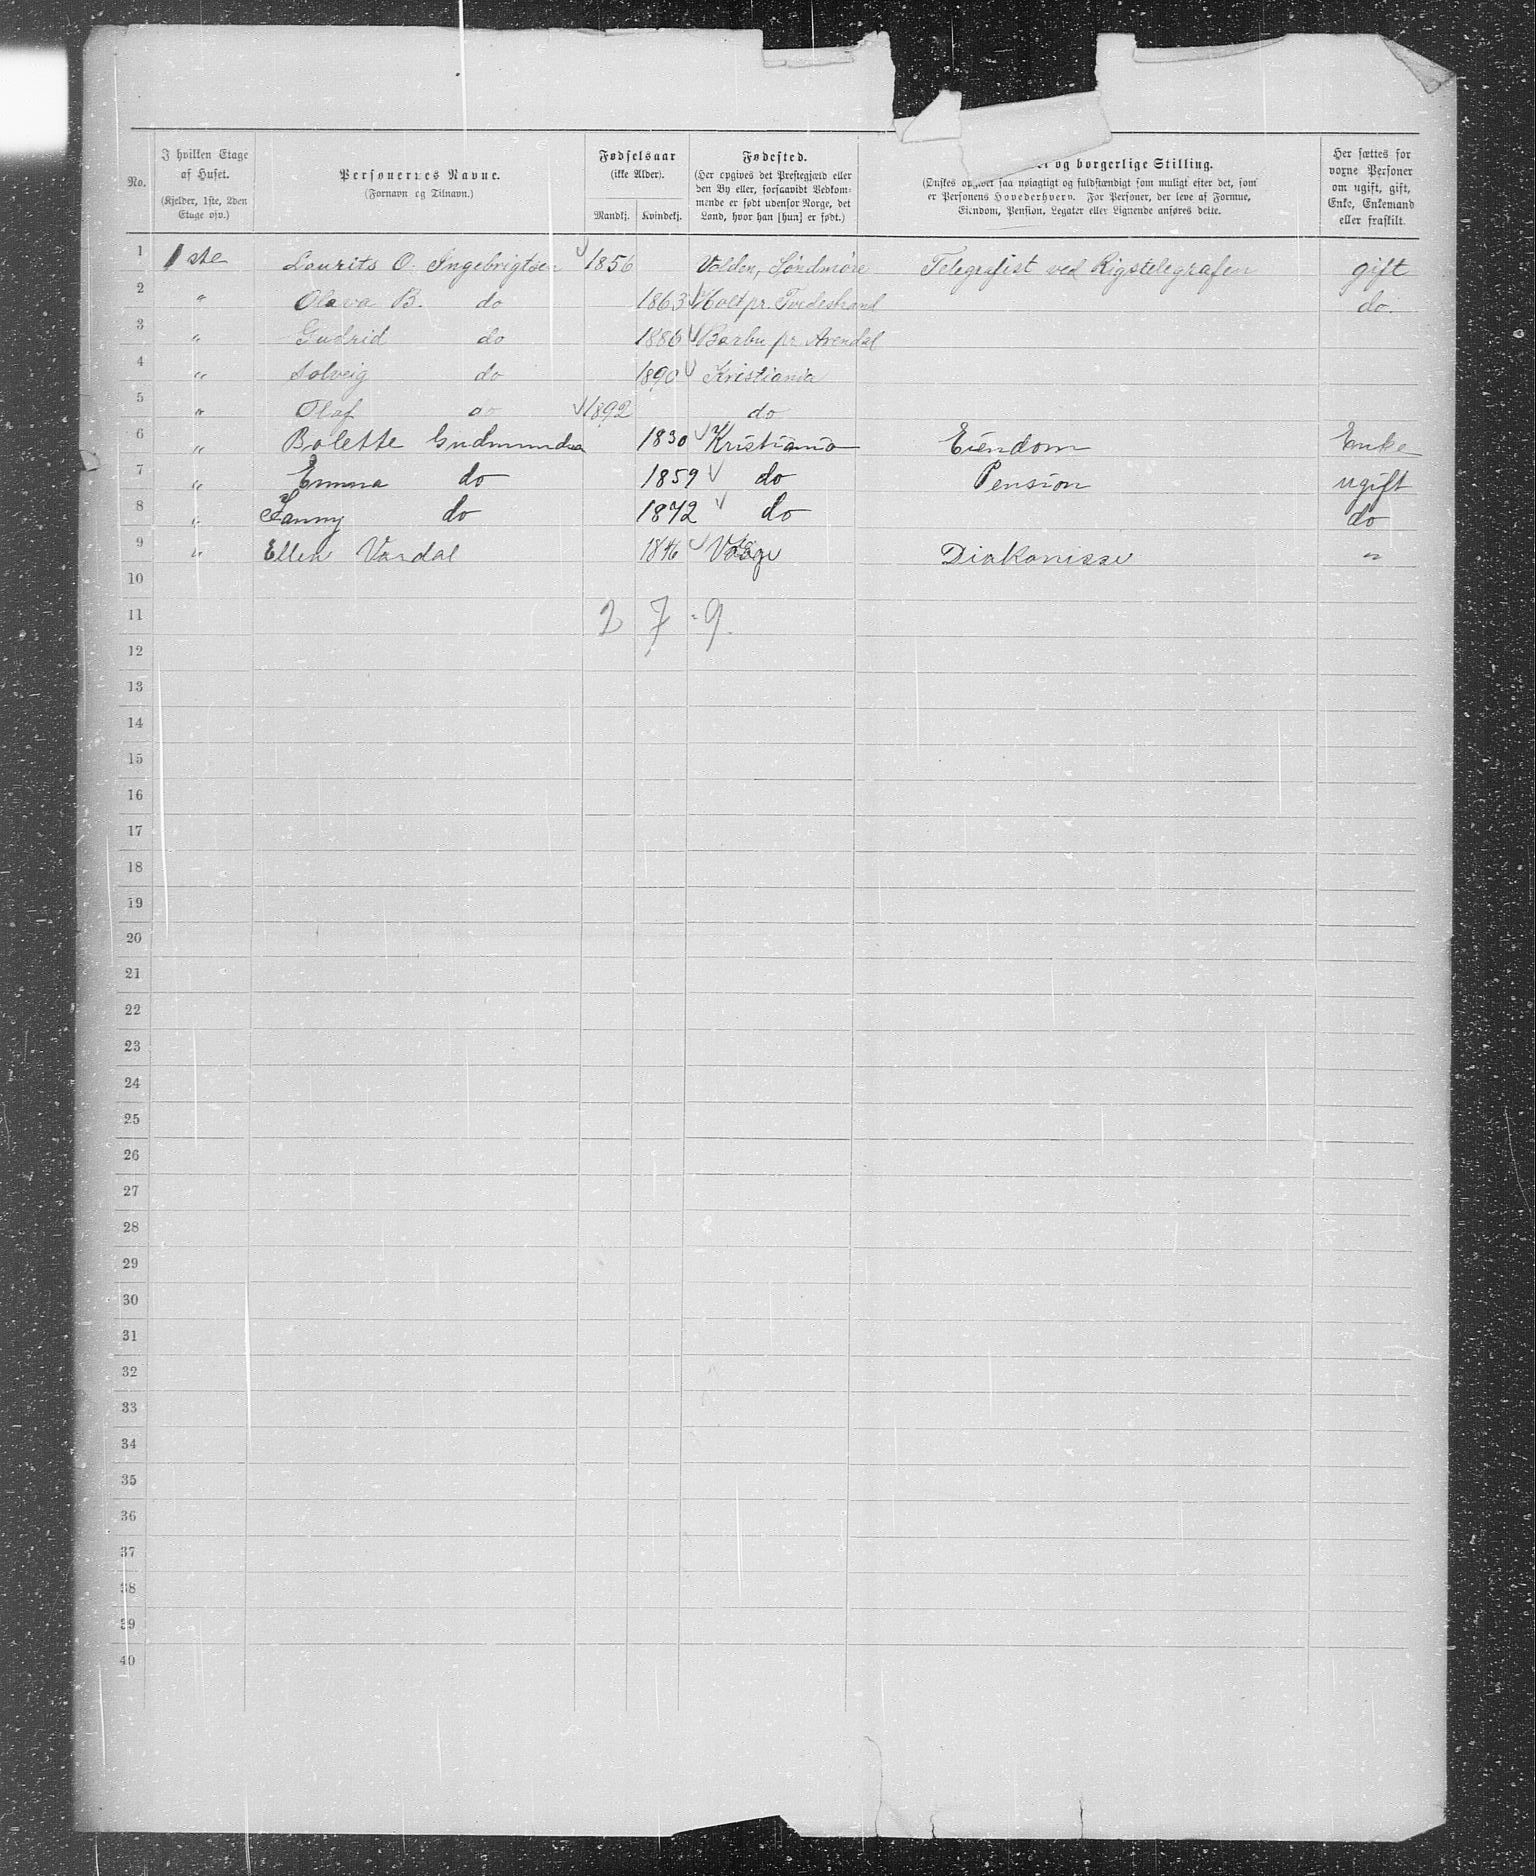 No.
I hvilken Etage af Huset.
(Kjelder, 1ste, 2den Etage osv.)
Personernes Navne.
(Fornavn og Tilnavn.)
Fødselsaar
(ikke Alder).
Mandkj. Kvindekj.
Fødested.
(Her opgives det Prestegjæld eller
den By eller, forsaavidt Vedkom-
mende er født udenfor Norge, det
Land, hvor han [hun] er født.)
og borgerlige Stilling.
(Ønskes opgivet saa nøiagtigt og fuldstændigt som muligt efter det, som
er Personens Hovederhverv. For Personer, der leve af Formue,
Eiendom, Pension, Legater eller Lignende anføres dette.
Her sættes for
voxne Personer
om ugift, gift,
Enke, Enkemand
eller fraskilt.
1 1ste Laurits O. Ingebrigtsen 1856 Volden, Søndmøre Telegrafist ved Rigstelegrafen gift
2 " Olava B. do 1863 Holt pr. Tvedestrand do.
3 " Gudrid do 1886 Barbu pr. Arendal
4 " Solveig do 1890 Kristiania
5 " Olaf do 1892 do
6 " Bolette Gudmundsen 1830 Kristiania Eiendom Enke
7 " Emma do 1859 do Pension ugift
8 " Fanny do 1872 do do
9 " Ellen Vardal 1846 Diakonisse "
10
11 2 7 · 9.
12
13
14
15
16
17
18
19
20
21
22
23
24
25
26
27
28
29
30
31
32
33
34
35
36
37
38
39
40